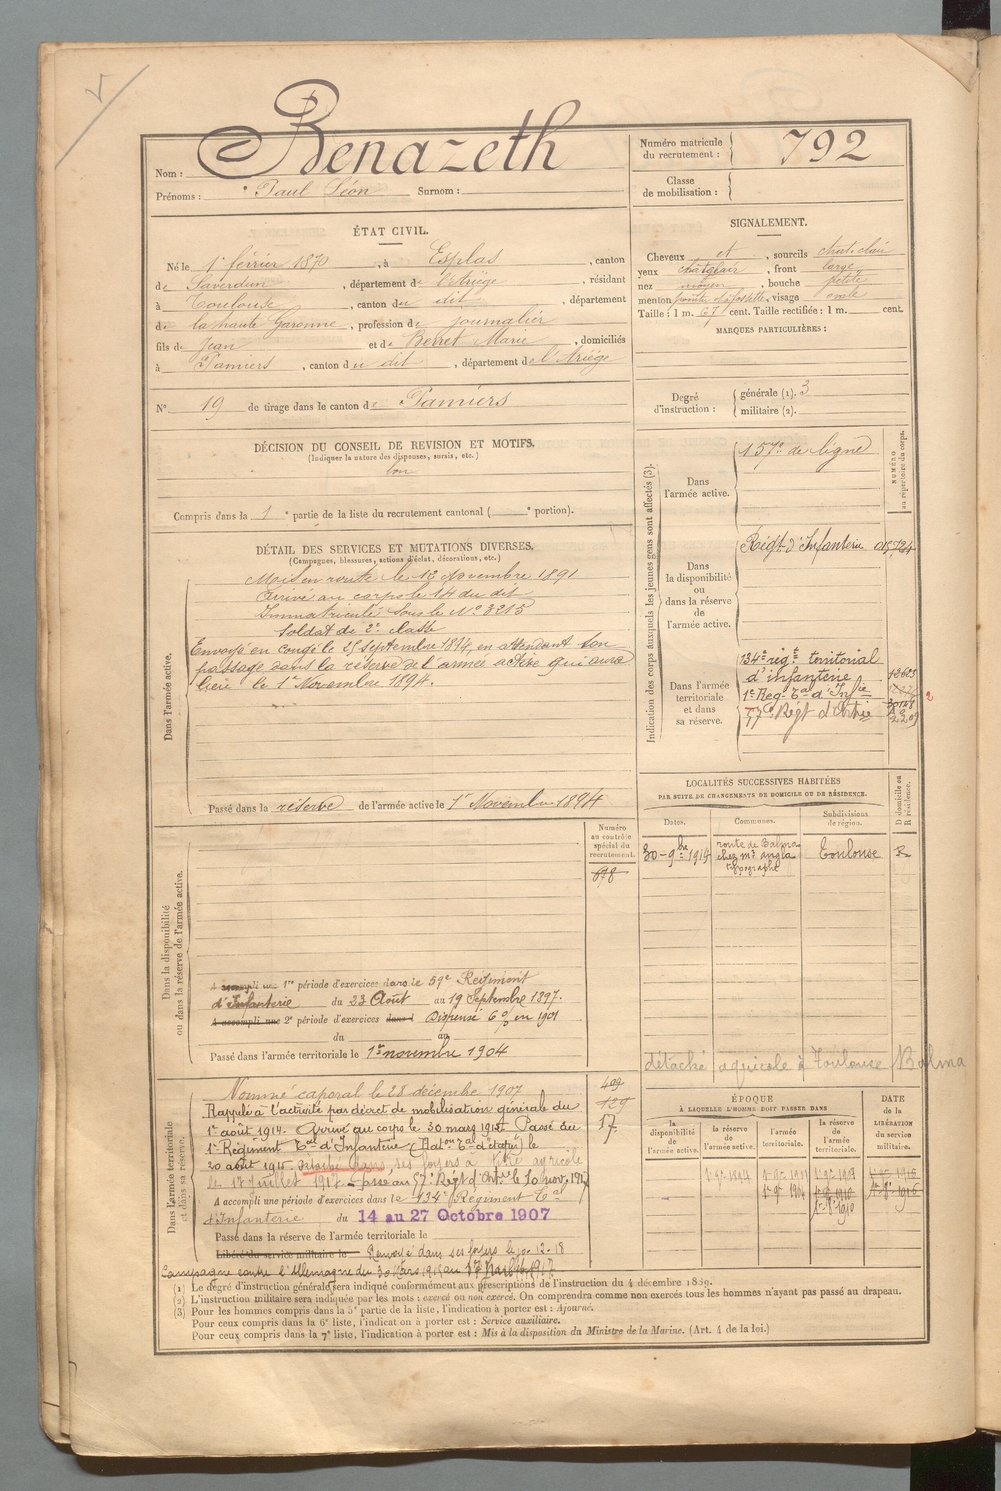 Benazeth
Nom :
Prénoms : Paul Léon Surnom :
Numéro matricule du recrutement : 792
Classe de mobilisation :
ÉTAT CIVIL.
Né le 1er février 1870, à Esplas, canton
de Saverdun, département de l'Ariège, résidant
à Toulouse, canton du dit, département
de la haute Garonne, profession de journalier
fils de Jean et de Berret Marie, domiciliés
à Pamiers, canton du dit, département de l'Ariège
N° 19 de tirage dans le canton de Pamiers
SIGNALEMENT.
Cheveux et, sourcils chat. clair
yeux chatclair, front large
nez moyen, bouche petite
menton pointu et fossette, visage ovale
Taille : 1 m. 67 cent. Taille rectifiée : 1 m. cent.
MARQUES PARTICULIÈRES :
Degré d'instruction : générale (1). 3
militaire (2).
DÉCISION DU CONSEIL DE REVISION ET MOTIFS.
(Indiquer la nature des dispenses, sursis, etc.)
bon
Compris dans la 1e partie de la liste du recrutement cantonal ( e portion).
DÉTAIL DES SERVICES ET MUTATIONS DIVERSES.
(Campagnes, blessures, actions d'éclat, décorations, etc.)
Dans l'armée active.
Mis en route le 12 Novembre 1891
Arrivé au corps le 14 du dit
Immatriculé sous le N° 3215
Soldat de 2e classe
Envoyé en congé le 25 septembre 1894, en attendant son
passage dans la réserve de l'armée active qui aura
lieu le 1er Novembre 1894.
Passé dans la réserve de l'armée active le 1er Novembre 1894
Indication des corps auxquels les jeunes gens sont affectés (3).
NUMÉRO au répertoire du corps.
Dans l'armée active.
157e de ligne
Dans la disponibilité ou dans la réserve de l'armée active.
Régt d'Infanterie
Dans l'armée territoriale et dans sa réserve.
134e rég.t territorial
d'infanterie
1er Reg. Tal d'Infie
57e Régt d'Artie
LOCALITÉS SUCCESSIVES HABITÉES
PAR SUITE DE CHANGEMENTS DE DOMICILE OU DE RÉSIDENCE.
Dates. Communes. Subdivisions de région. D domicile ou R résidence.
30-9bre 1914 route de Balma Toulouse R
chez mr Angla
typographe
détaché agricole à Toulouse Balma
Dans la disponibilité ou dans la réserve de l'armée active.
Numéro au contrôle spécial du recrutement.
618
A accompli une 1re période d'exercices dans le 59e Régiment
d'Infanterie du 23 Août au 19 Septembre 1897.
A accompli une 2e période d'exercices dans l Dispensé 6% en 1901
du au
Passé dans l'armée territoriale le 1er novembre 1904
Dans l'armée territoriale et dans sa réserve.
409
129
17
Nommé caporal le 28 décembre 1907
Rappelé à l'activité par décret de mobilisation générale du
1er août 1914. Arrivé au corps le 30 mars 1915 Passé au
1er Régiment Tal d'Infanterie (Adon Tal d'état) le
20 août 1915. Détaché dans ses foyers à titre agricole
le 17 Juillet 1917. Passé au 57e Régt d'Artie le 10 nov. 1917
A accompli une période d'exercices dans le 134e Régiment Tal
d'Infanterie du 14 au 27 Octobre 1907
Passé dans la réserve de l'armée territoriale le
Libéré du service militaire le Renvoyé dans ses foyers le 10-12-18
Campagne contre l'Allemagne du 30 Mars 1915 au
ÉPOQUE
À LAQUELLE L'HOMME DOIT PASSER DANS
la disponibilité de l'armée active. la réserve de l'armée active. l'armée territoriale. la réserve de l'armée territoriale.
DATE de la LIBÉRATION du service militaire.
1er 9bre 1894
1er 9bre 1904
1er 8e 1910
1er 8e 1916
(1) Le degré d'instruction générale sera indiqué conformément aux prescriptions de l'instruction du 4 décembre 1889.
(2) L'instruction militaire sera indiquée par les mots : exercé ou non exercé. On comprendra comme non exercés tous les hommes n'ayant pas passé au drapeau.
(3) Pour les hommes compris dans la 5e partie de la liste, l'indication à porter est : Ajourné.
Pour ceux compris dans la 6e liste, l'indication à porter est : Service auxiliaire.
Pour ceux compris dans la 7e liste, l'indication à porter est : Mis à la disposition du Ministre de la Marine. (Art. 4 de la loi.)